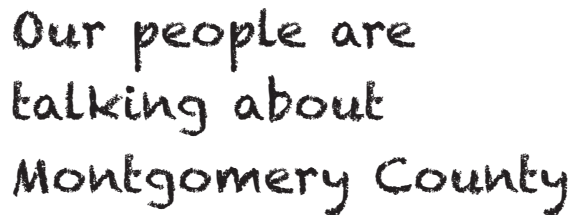 Our people are
talking about
Montgomery County